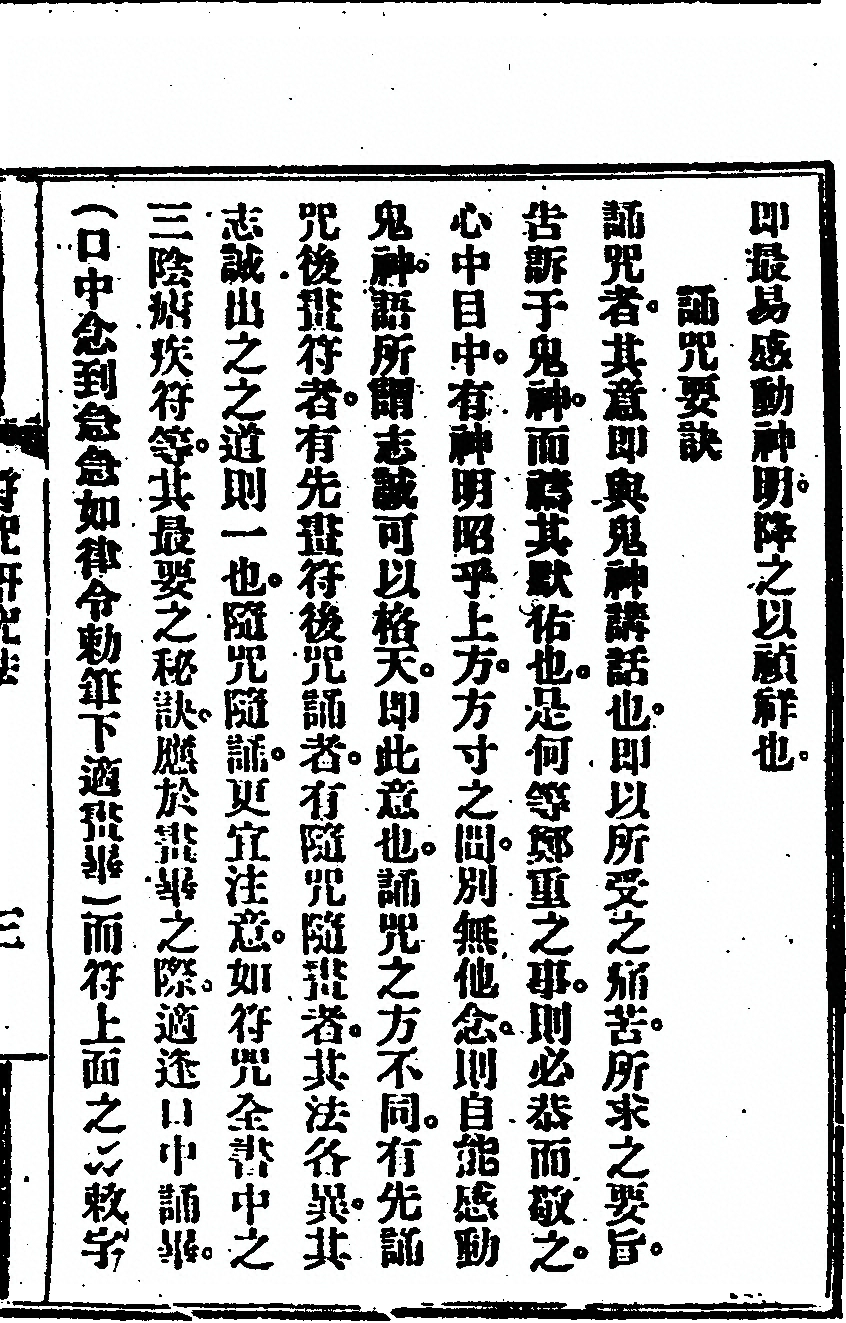 即最易感動神明。降之以禎祥也。
誦咒要訣
誦咒者。其意即與鬼神講話也。即以所受之痛苦。所求之要旨。
告訴于鬼神。而禱其默佑也。是何等鄭重之事。則必恭而敬之。
心中目中。有神明昭乎上方。方寸之間。別無他念。則自能感動
鬼神。語所謂志誠可以格天。即此意也。誦咒之方不同。有先誦
咒後畫符者。有先畫符後咒誦者。有隨咒隨畫者。其法各異。其
志誠出之之道則一也。隨咒隨誦。更宜注意。如符咒全書中之
三陰瘧疾符等。其最要之秘訣。應於畫畢之際。適逢口中誦畢。
（口中念到急急如律令勅筆下適畫畢）而符上面之
敕字
符咒研究法
三